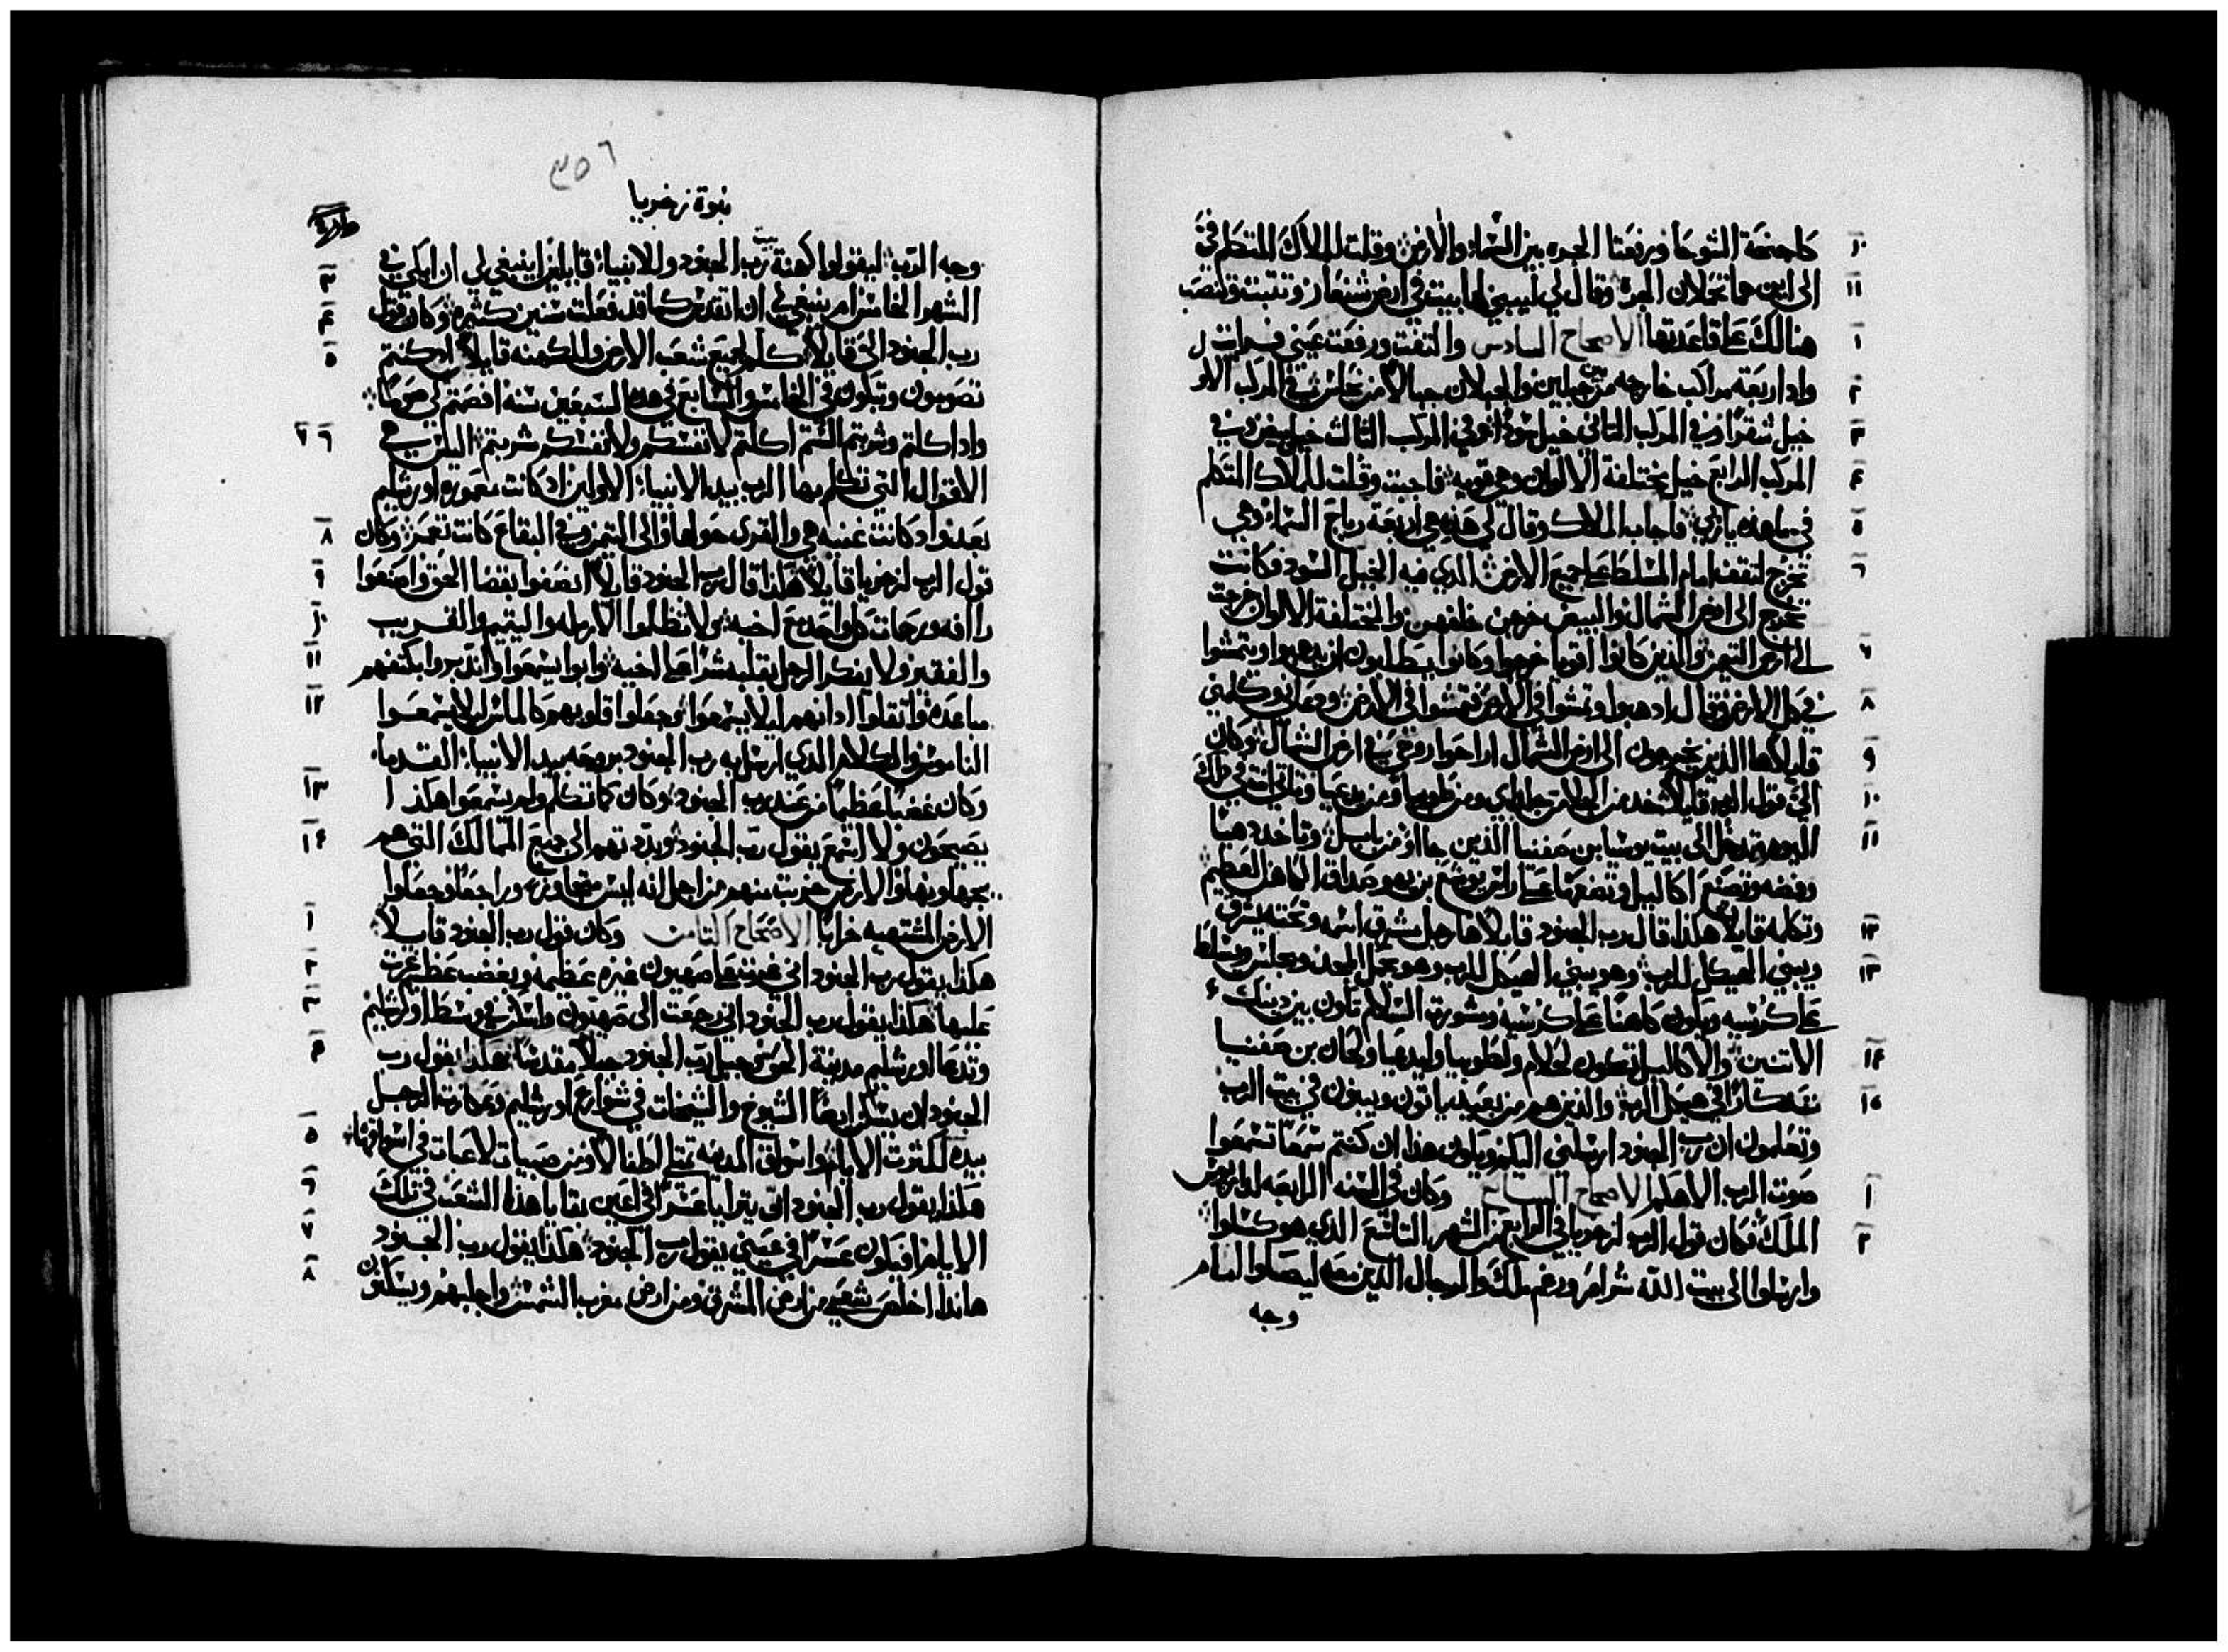 كاجنحة الشوحا ورفعتا الجره بين السماء والارض وقلت للملاك المتكلم فيّ
الى اين هما تحملان الجرة وقال لي ليبنى لها بيت في ارض شنعار وتتبت وتنصب
هنالك على قاعدتها الاصحاح السادس والتفت ورفعت عيني فرايت
واذ اربعة مراكب خارجه من بين جبلين والجبلان جبالا من نحاس في المركب الاو
خيل شقر وفي المركب التاني خيل سود وفي المركب الثالث خيل بيض وفي
المركب الرابع خيل مختلفة الالوان وهي قويه فاجبت وقلت للملاك المتكلم
في ما هذه يا ربي فاجاب الملاك وقال لي هذه هي اربعة رياح السماء وهي
تخرج لتقف امام المسلط على جميع الارض الذي فيه الخيل السود فكانت
تخرج الى ارض الشمال والبيض خرجن خلفهن والمختلفة الالوان خرجت
الى ارض التيمن والذين كانوا اقويا خرجوا وكانوا يطلبون ان يذهبوا ويتمشوا
في كل الارض وقال اذهبوا وتمشوا في الارض فتمشوا في الارض ودعاني وكلمني
قايلا ها الذين يخرجون الى ارض الشمال اراحوا روحي في ارض الشمال وكان
الي قول الرب قايلا تخذ من الجلا من حلداي ومن طوبيا ومن يدعيا وتاتي انت في ذلك
اليوم وتدخل الى بيت يوشيا بن صفنيا الذين جاؤا من بابل وتاخد دهبا
وفضه وتصنع اكاليل وتضعها على راس يوشع بن يهوصداق الكاهن العظيم
وتكلمه قايلا هكذا قال رب الجنود قايلا ها رجل مشرق اسمه وتحته يشرق
ويبني الهيكل للرب وهو يبني الهيكل للرب وهو يحمل المجد ويجلس ويتسلط
على كرسيه ويكون كاهنا على كرسيه ومشورة السلام تكون بين دينك
الاتنين والاكاليل تكون لحلام ولطوبيا وليدعيا ولحان بن صفنيا
تذكارا في هيكل الرب والذين هم من بعيد ياتون ويبنون في بيت الرب
وتعلمون ان رب الجنود ارسلني اليكم ويكون هذا ان كنتم سمعا تسمعوا
صوت الرب الاهكم الاصحاح السابع وكان في السنه الرابعه لداريوس
الملك فكان قول الرب لزخريا في الرابع من الشهر التاسع الذي هو كسلوا
وارسلوا الى بيت الله شراصر ورغم ملك والرجال الذين معه ليصلوا امام
وجه
٣٥٦
نبوة زخريا
وجه الرب ليقولوا لكهنة بيت رب الجنود وللانبياء قايلين اينبغي لي ان ابكي في
الشهر الخامس ام ينبغي لي ان اتقدس كما قد فعلت سنين كثيره وكان قول
رب الجنود الي قايلا كلم لجميع شعب الارض وللكهنه قايلا اذ كنتم
تصومون وتبكون في الخامس والسابع في هذه السبعين سنه افصمتم لي صوما
واذا كلتم وشربتم الستم اكلتم لانفسكم ولانفسكم شربتم اليس هي
الاقوال التي تكلم بها الرب بيد الانبياء الاولين اذ كانت معموره اورشليم
بعد واذ كانت غنيه هي والقرى حولها والى التيمن وفي البقاع كانت تعمر وكان
قول الرب لزخريا قايلا هكذا قال رب الجنود قايلا انصفوا بقضا الحق واصنعوا
راافه ورحمات كل واحد مع اخيه ولا تظلموا الارمله واليتيم والغريب
والفقير ولا يفكر الرجل بقلبه شرا على اخيه وابوا يسمعوا واندبروا بكتفهم
مباعده واتقلوا ادانهم ليلا يسمعوا وجعلوا قلوبهم كالماس ليلا يسمعوا
الناموس والكلام الذي ارسل به رب الجنود بروحه بيد الانبياء القدما
وكان غضبا عظيما من عند رب الجنود وكان كما تكلم ولم يسمعوا هكذا
يصيحون ولا اسمع يقول رب الجنود وبددتهم الى جميع الممالك التي هم
يجهلونها والارض خربت منهم من اجل انه ليس متجاوز وراجعا وجعلوا
الارض المشتهيه خرابا الاصحاح التامن وكان قول رب الجنود قايلا
هكذا يقول رب الجنود اني غرت على صهيون غيره عظيمه وبغضب عظيم غرت
عليها هكذا يقول رب الجنود اني رجعت الى صهيون واسكن في وسط اورشليم
وتدعا اورشليم مدينة الحق وجبل رب الجنود جبلا مقدسا هكذا يقول رب
الجنود ان يسكن ايضا الشيوخ والشيخات في شوارع اورشليم وعكازة الرجل
بيده لكثرت الايام واسواق المدينه تمتلي اطفالا ومن صبيات لاعبات في اسواقها
هكذا يقول رب الجنود ان يترايا عسرا في اعين بقايا هذا الشعب في تلك
الايام افيكون عسرا في عيني يقول رب الجنود هكذا يقول رب الجنود
هانذا اخلص شعبي من ارض المشرق ومن ارض مغرب الشمس واجلبهم ويسكنون